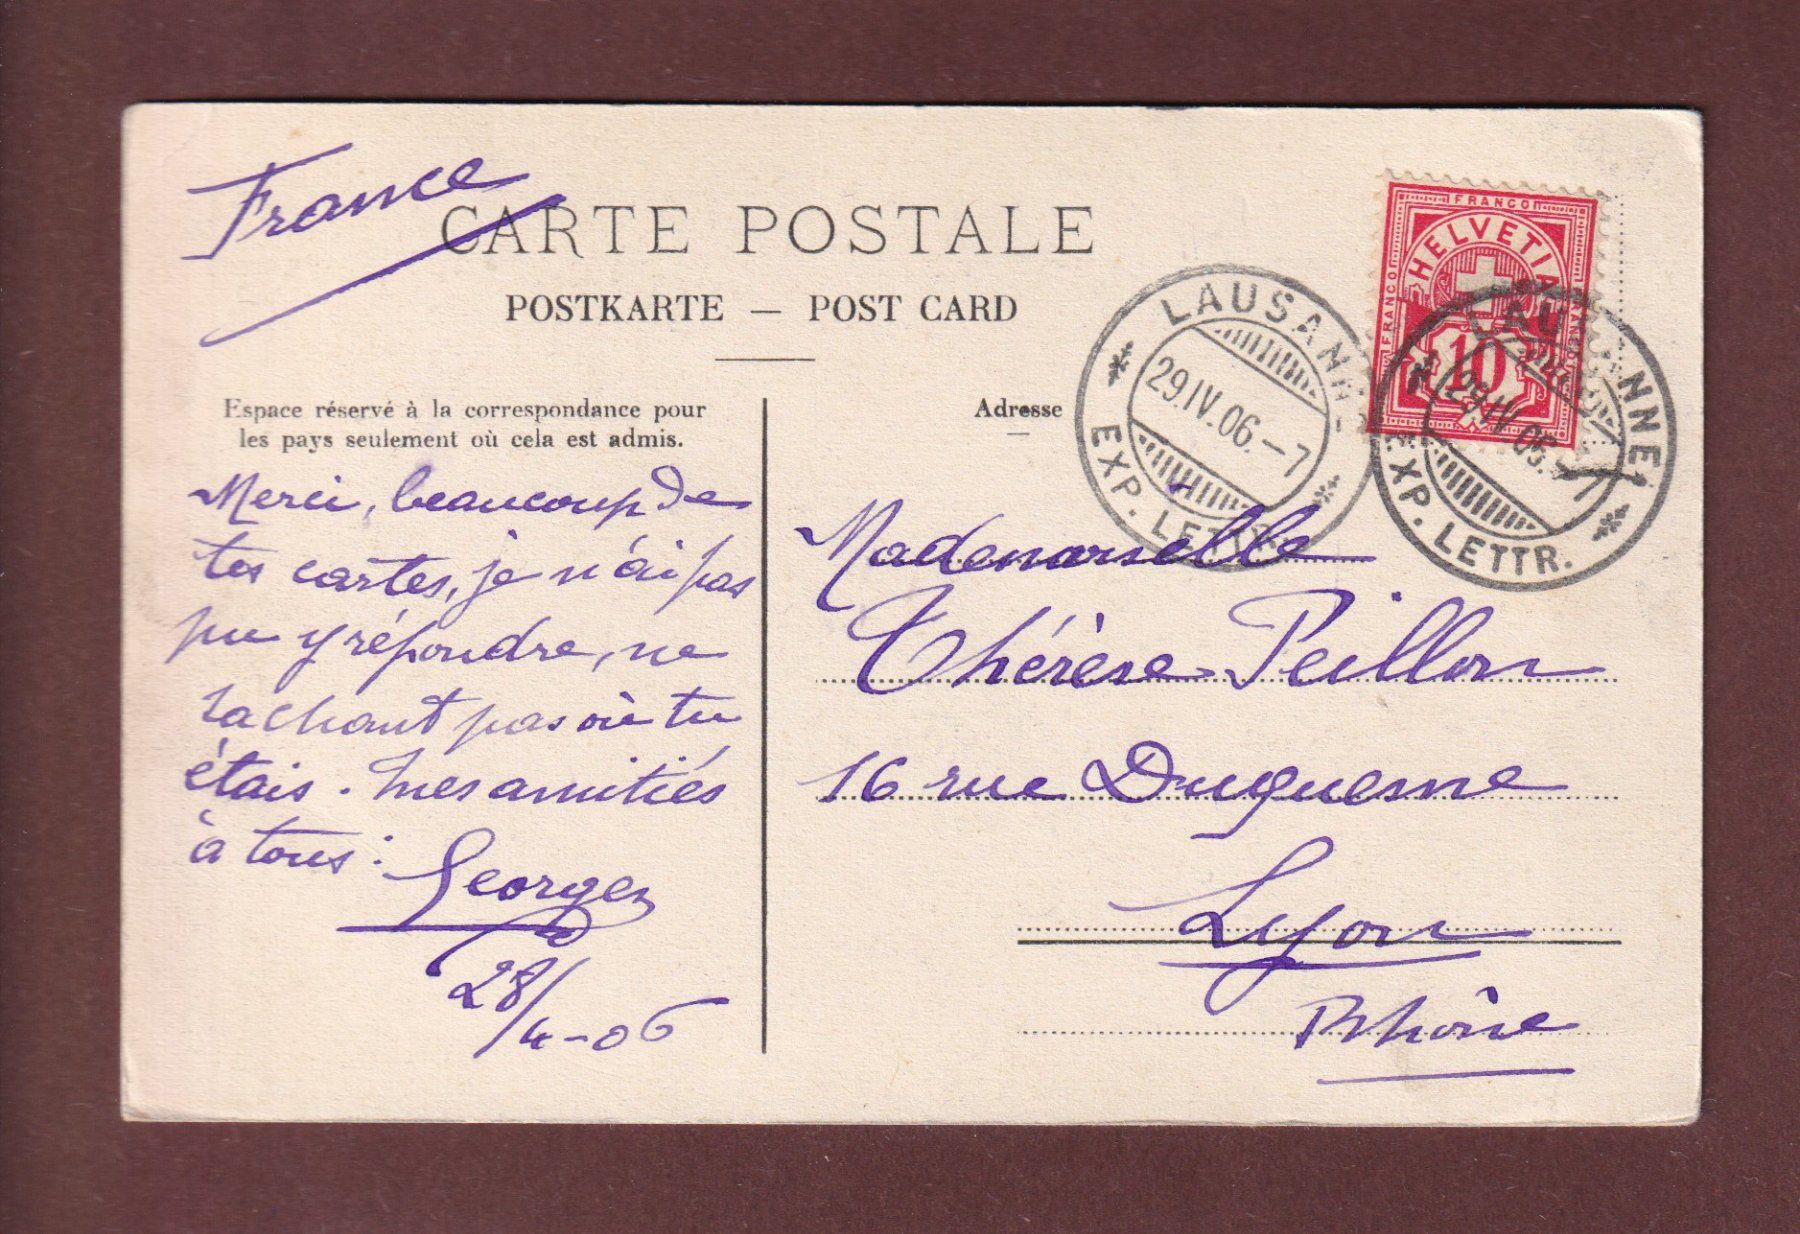 France
CARTE POSTALE
POSTKARTE — POST CARD
Espace réservé à la correspondance pour
les pays seulement où cela est admis.
Merci, beaucoup de
tes cartes, je n'ai pas
pu y répondre, ne
sachant pas où tu
étais. mes amitiés
à tous.
Georges
28/4-06
Adresse
FRANCO
FRANCO
FRANCO
HELVETIA
10
LAUSANNE
29.IV.06.-7
EXP. LETTR.
LAUSANNE
29.IV.06.-7
EXP. LETTR.
Mademoiselle
Thérèse Peillon
16 rue Duquesne
Lyon
Rhône